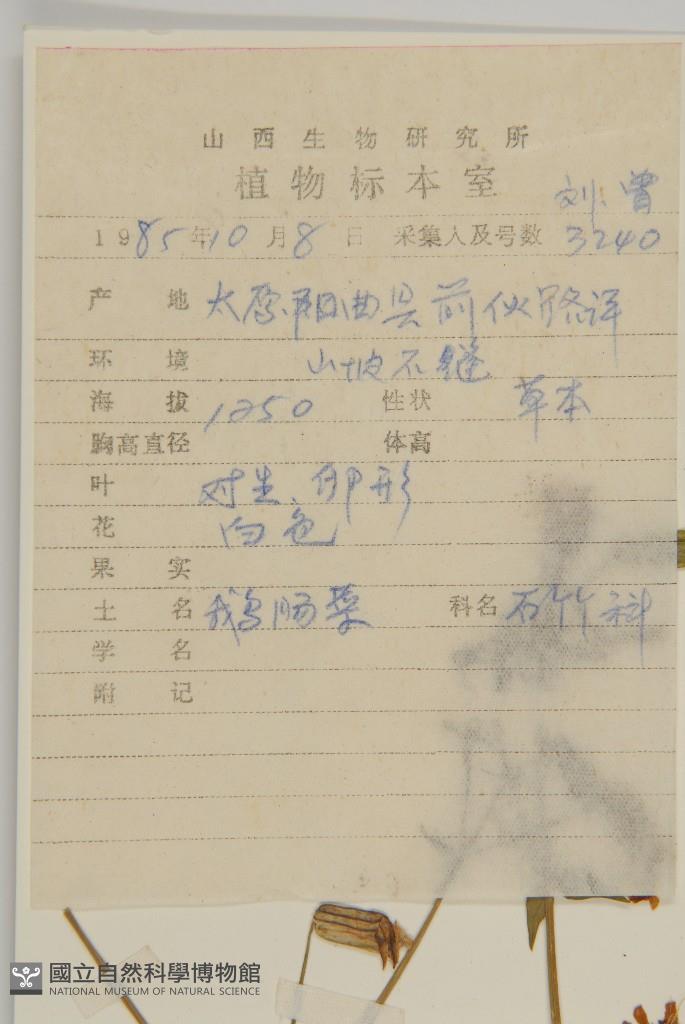 山西生物研究所
植物标本室
刘、曾
1985年10月8日 采集人及号数 3240
产地 太原阳曲县前伙路
环境 山坡石缝
海拔 1250 性状 草本
胸高直径 体高
叶 对生、卵形
花 白色
果实
土名 鹅肠菜 科名 石竹科
学名
附记
國立自然科學博物館
NATIONAL MUSEUM OF NATURAL SCIENCE